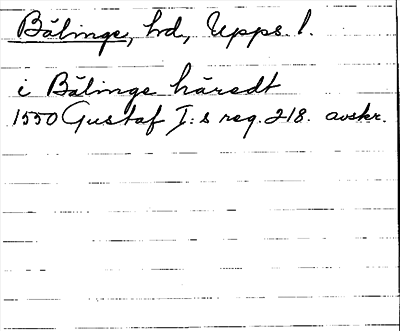 Bälinge, hd, Upps. l.
i Bälinge häredt
1550 Gustaf I:s reg. 218. avskr.